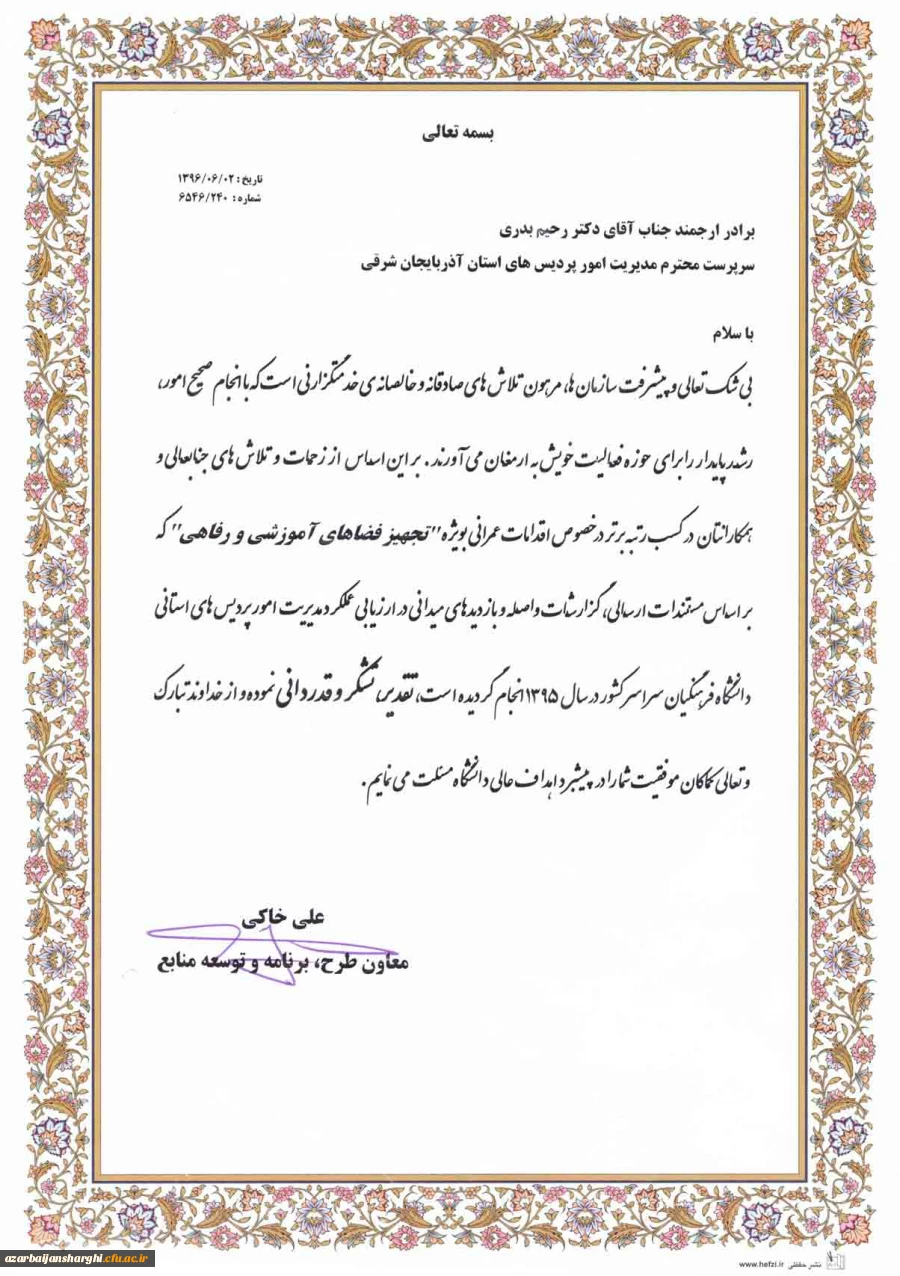 بسمه تعالی
تاریخ: ۱۳۹۶/۰۶/۰۲
شماره: ۶۵۴۶/۲۴۰
برادر ارجمند جناب آقای دکتر رحیم بدری
سرپرست محترم مدیریت امور پردیس های استان آذربایجان شرقی
با سلام
بی شک تعالی و پیشرفت سازمان ها، مرهون تلاش های صادقانه و خالصانه ی خدمتگزارانی است که با انجام صحیح امور،
رشد پایدار را برای حوزه فعالیت خویش به ارمغان می آورند. بر این اساس از زحمات و تلاش های جنابعالی و
همکارانتان در کسب رتبه برتر در خصوص اقدامات عمرانی بویژه "تجهیز فضاهای آموزشی و رفاهی" که
بر اساس مستندات ارسالی، گزارشات واصله و بازدیدهای میدانی در ارزیابی عملکرد مدیریت امور پردیس های استانی
دانشگاه فرهنگیان سراسر کشور در سال ۱۳۹۵ انجام گردیده است، تقدیر، تشکر و قدردانی نموده و از خداوند تبارک
و تعالی کماکان موفقیت شما را در پیشبرد اهداف عالی دانشگاه مسئلت می نمایم.
علی خاکی
معاون طرح، برنامه و توسعه منابع
azarbaijansharghi.cfu.ac.ir
نشر حفظی www.hefzi.ir